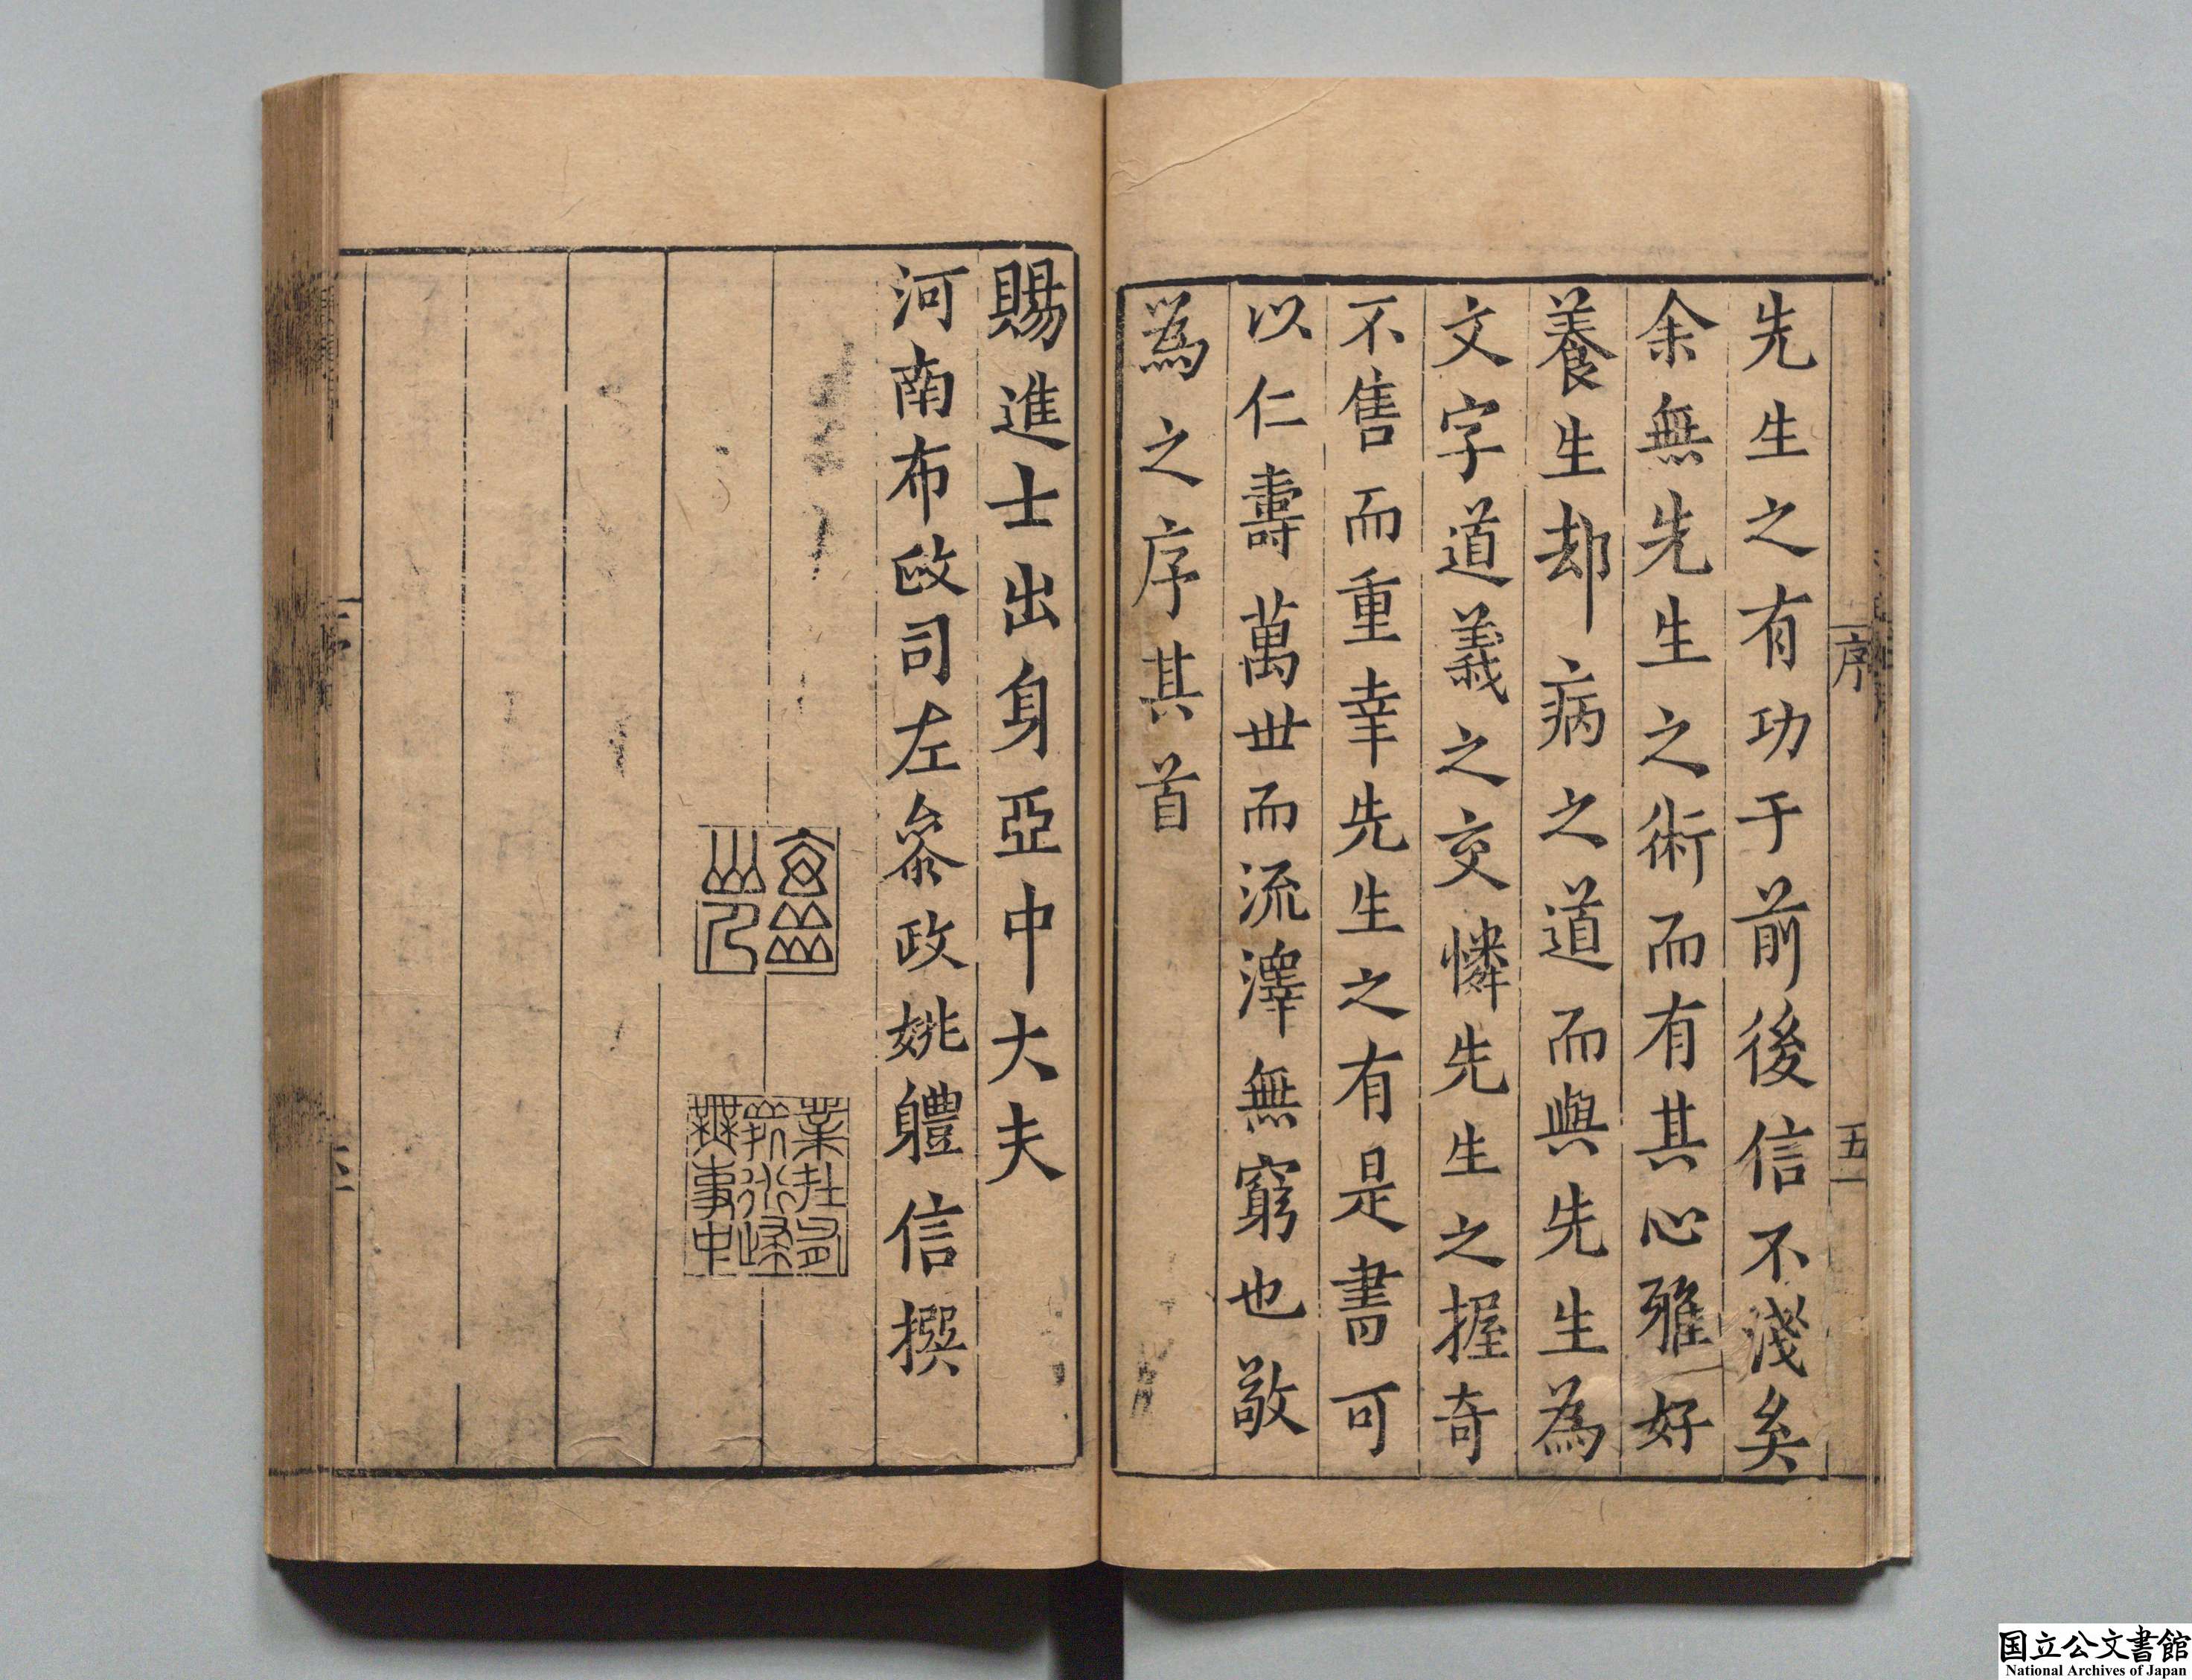 序
五
先生之有功于前後信不淺矣
余無先生之術而有其心雅好
養生却病之道而與先生為
文字道義之交憐先生之握奇
不售而重幸先生之有是書可
以仁壽萬世而流澤無窮也敬
為之序其首
賜進士出身亞中大夫
河南布政司左叅政姚體信撰
国立公文書館
National Archives of Japan